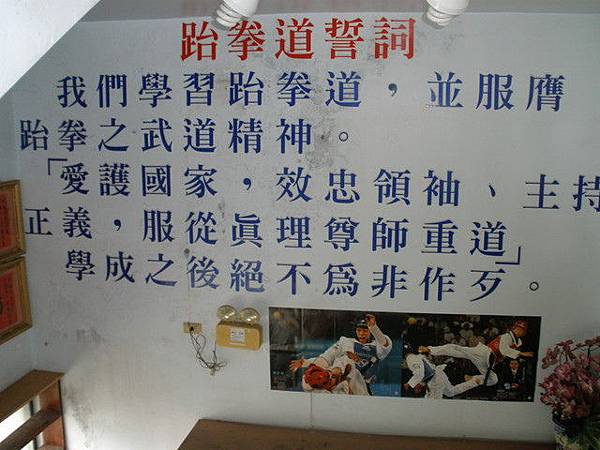 跆拳道誓詞
我們學習跆拳道，並服膺
跆拳之武道精神。
「愛護國家，效忠領袖、主持
正義，服從眞理尊師重道」
學成之後絕不爲非作歹。